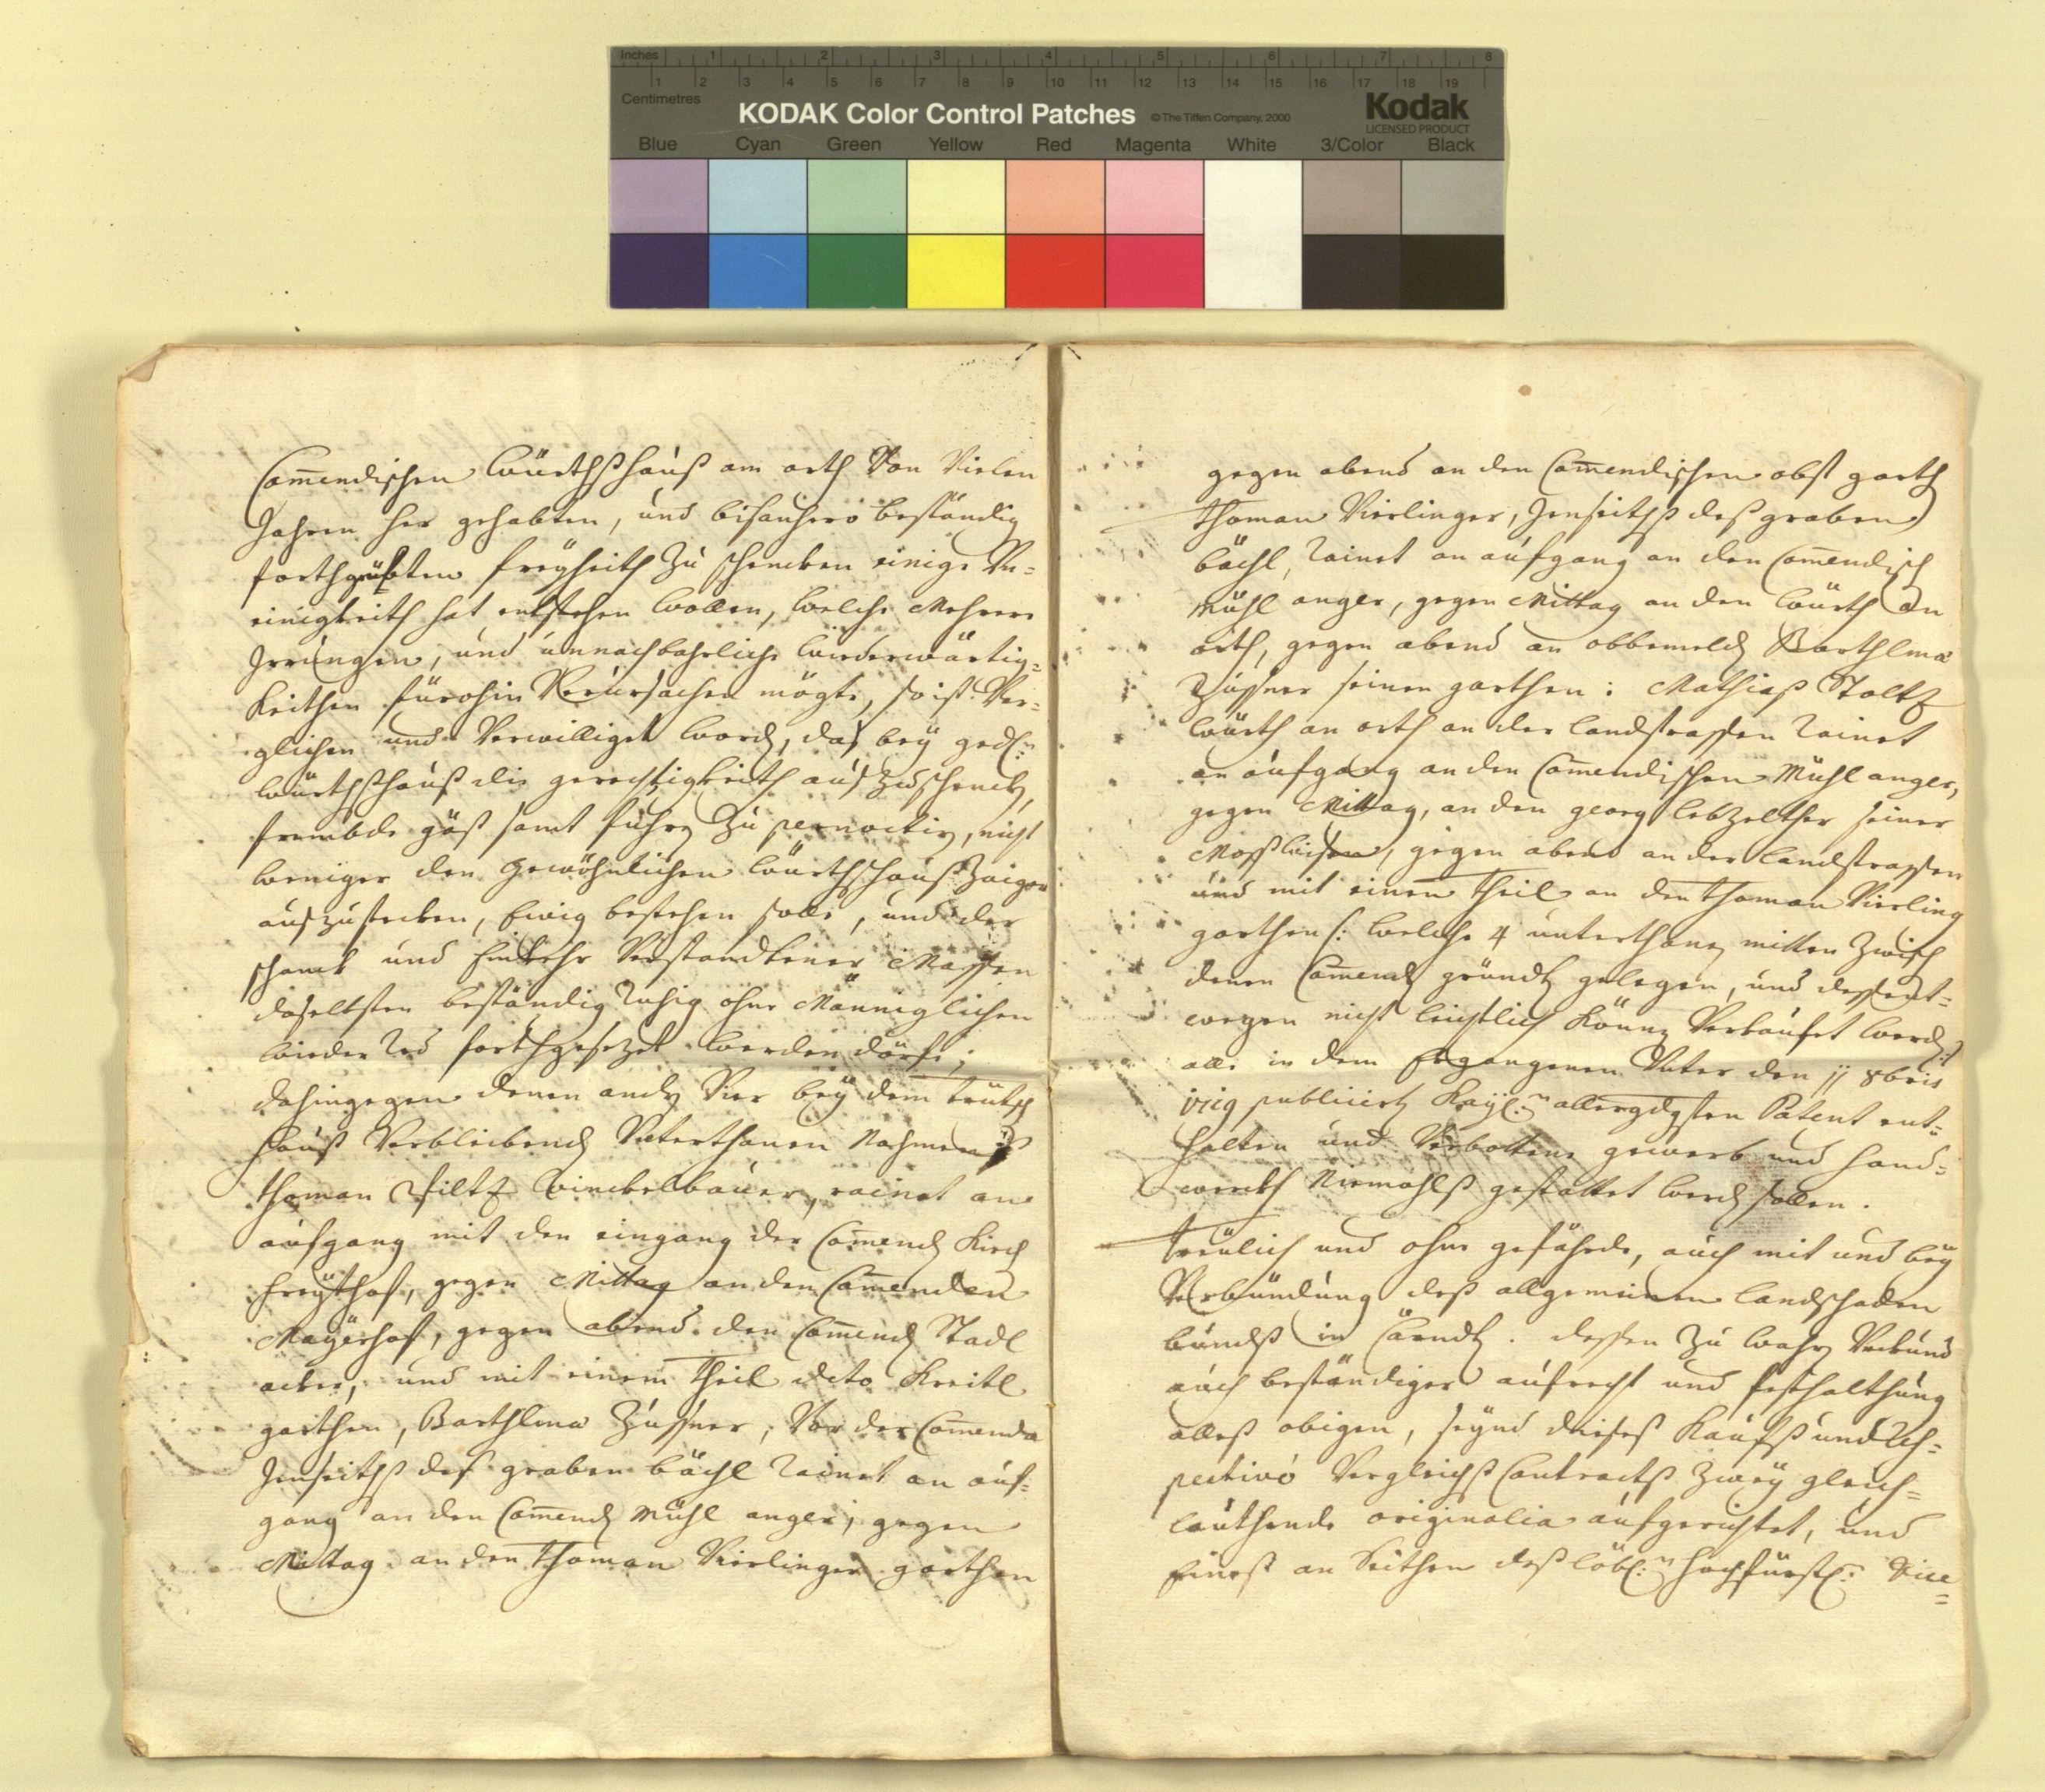 Inches 1 2 3 4 5 6 7 8
1 2 3 4 5 6 7 8 9 10 11 12 13 14 15 16 17 18 19
Centimetres
KODAK Color Control Patches © The Tiffen Company, 2000 Kodak
LICENSED PRODUCT
Blue Cyan Green Yellow Red Magenta White 3/Color Black
Com̄endischen Würthßhauß am orth Von Vielen
Jahren her gehabten, und bishanhero beständig
forthgeübten freyheith Zu schencken einige Un=
einigkeith hat entstehen wollen, welche Mehrere
Irrungen, und unnachbahrliche widerwärtig=
keithen fürohin Verursachen mögte, so ist Ver=
glichen und Verwilliget word, das bey gedl:n
Würthßhauß die gerechtigkeith auszuschenck,
frembde gäst samt fuhr Zu pernoctir, nicht
weniger den gewöhnlichen Würthßhauß Zaiger
auszustecken, Ewig bestehen solle, und der
schanck und Einkehr Verstandtener Massen
daselbsten beständig ruhig ohne Männiglichen
wieder Red forthgesezet werden dörfe;
dahingegen denen and Vier bey dem teütsch
hauß Verbleibend Unterthanen Nahmens
Thoman Filtz Winckelbauer, rainet an
aufgang mit den eingang der Com̄end Kirch
freythof, gegen Mittag an den Com̄enden
Mayerhof, gegen abend den Com̄end Stadl
acker, und mit einem Theil dito Kreitl
garthen, Barthlmä Zussner, Vor der Com̄enda
Jenseiths des graben bächl rainet an auf=
gang an den Com̄end Mühl anger, gegen
Mittag an den Thoman Vierlinger garthen
gegen abend an den Com̄endischen obst garth
Thoman Vierlinger, Jenseiths deß graben
bächl, rainet an aufgang an den Com̄endisch
Mühl anger, gegen Mittag an den Würth an
orth, gegen abend an obbemeld Barthlmä
Zussner seinen garthen: Mathias Stoltz
Würth an orth an der landstrassen rainet
an aufgang an den Com̄endischen Mühl anger,
gegen Mittag, an den georg lebzelther seiner
Mossen, gegen abend an der landstrassen
und mit einen Theil an den Thoman Vierling
garthen /: welche 4 unterthan mitten Zwisch
denen Com̄end gründt gelegen, und dessent=
wegen nicht leichtlich könn Verkaufet werd :/
alle in dem Ergangenen Unter den 11 8bris
publicirt Kayl:n allergdgsten Patent ent=
halten und Verbottene gewerb und hand=
werckh Niemahlß gestattet werd sollen.
Treülich und ohne gefährde, auch mit und bey
Verbündung deß allgemeinen landschaden
bundß in Cärndt. dessen Zu wahr Urkund
auch beständiger aufrecht und festhalthung
alleß obigen, seynd dieses Kaufß und res=
pectivè Vergleichß Contractß Zwey gleich=
lauthende originalia aufgerichtet, und
Eineß an Seithen deß löbl:n hochfürstl:n Vice=